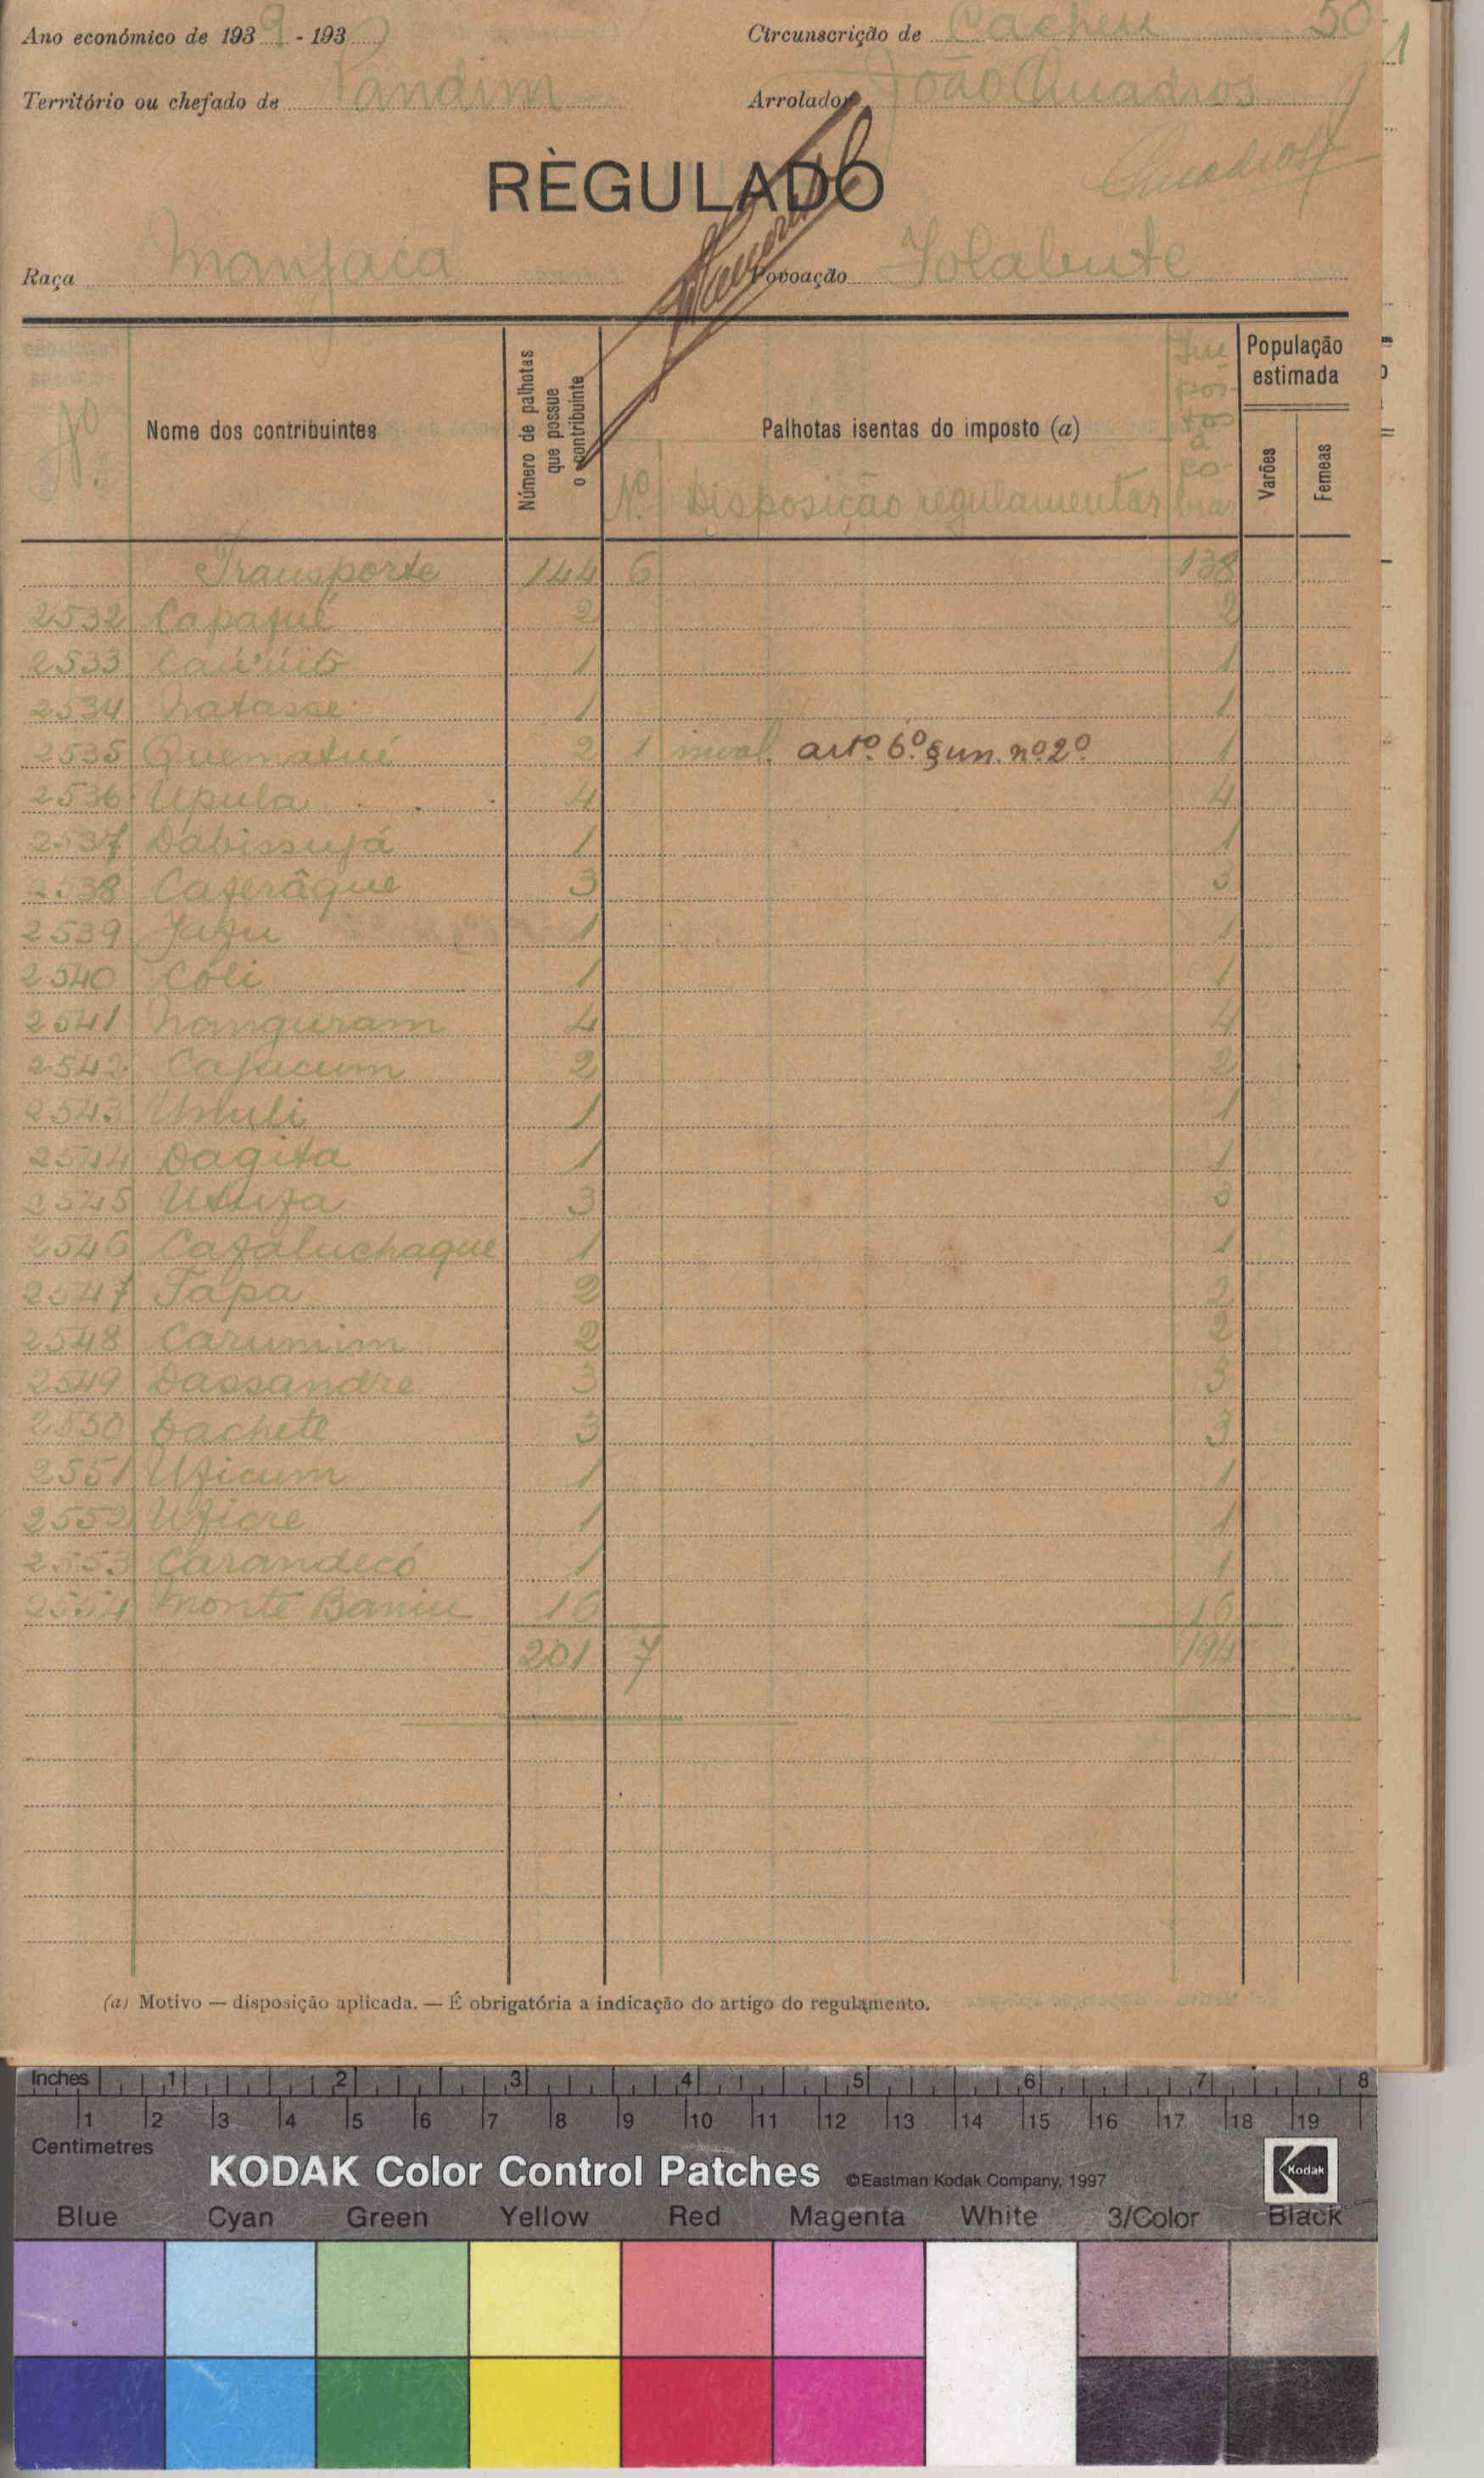 Ano económico de 1939 - 193
Circunscrição de Cacheu 50
Território ou chefado de Pandim
Arrolador João Quadros
RÈGULADO
Quadros
Raça Manjaca
Povoação Jolabute
Nº
Nome dos contribuintes
Número de palhotas que possue o contribuinte
Palhotas isentas do imposto (a)
Nº Disposição regulamentar
Impostos a cobrar
População estimada
Varões
Femeas
Transporte 144 6 138
2532 Capafué 2 2
2533 1 1
2534 Natasse 1 1
2535 Quematué 2 1 inval. artº. 6º. §un. nº 2º 1
2536 Upula 4 4
2537 Dabissujá 1 1
2538 Caferâque 3 3
2539 Jafu 1 1
2540 Coli 1 1
2541 Nanguram 4 4
2542 Cafacum 2 2
2543 1 1
2544 Dagita 1 1
2545 3 3
2546 Cafaluchaque 1 1
2547 Tapa 2 2
2548 Carumim 2 2
2549 Dassandre 3 3
2550 Dachete 3 3
2551 Uficum 1 1
2552 Uficre 1 1
2553 Carandecó 1 1
2554 Monte Baniu 16 16
201 7 194
(a) Motivo — disposição aplicada. — É obrigatória a indicação do artigo do regulamento.
Inches 1 2 3 4 5 6 7 8
1 2 3 4 5 6 7 8 9 10 11 12 13 14 15 16 17 18 19
Centimetres
KODAK Color Control Patches ©Eastman Kodak Company, 1997 Kodak
Blue Cyan Green Yellow Red Magenta White 3/Color Black